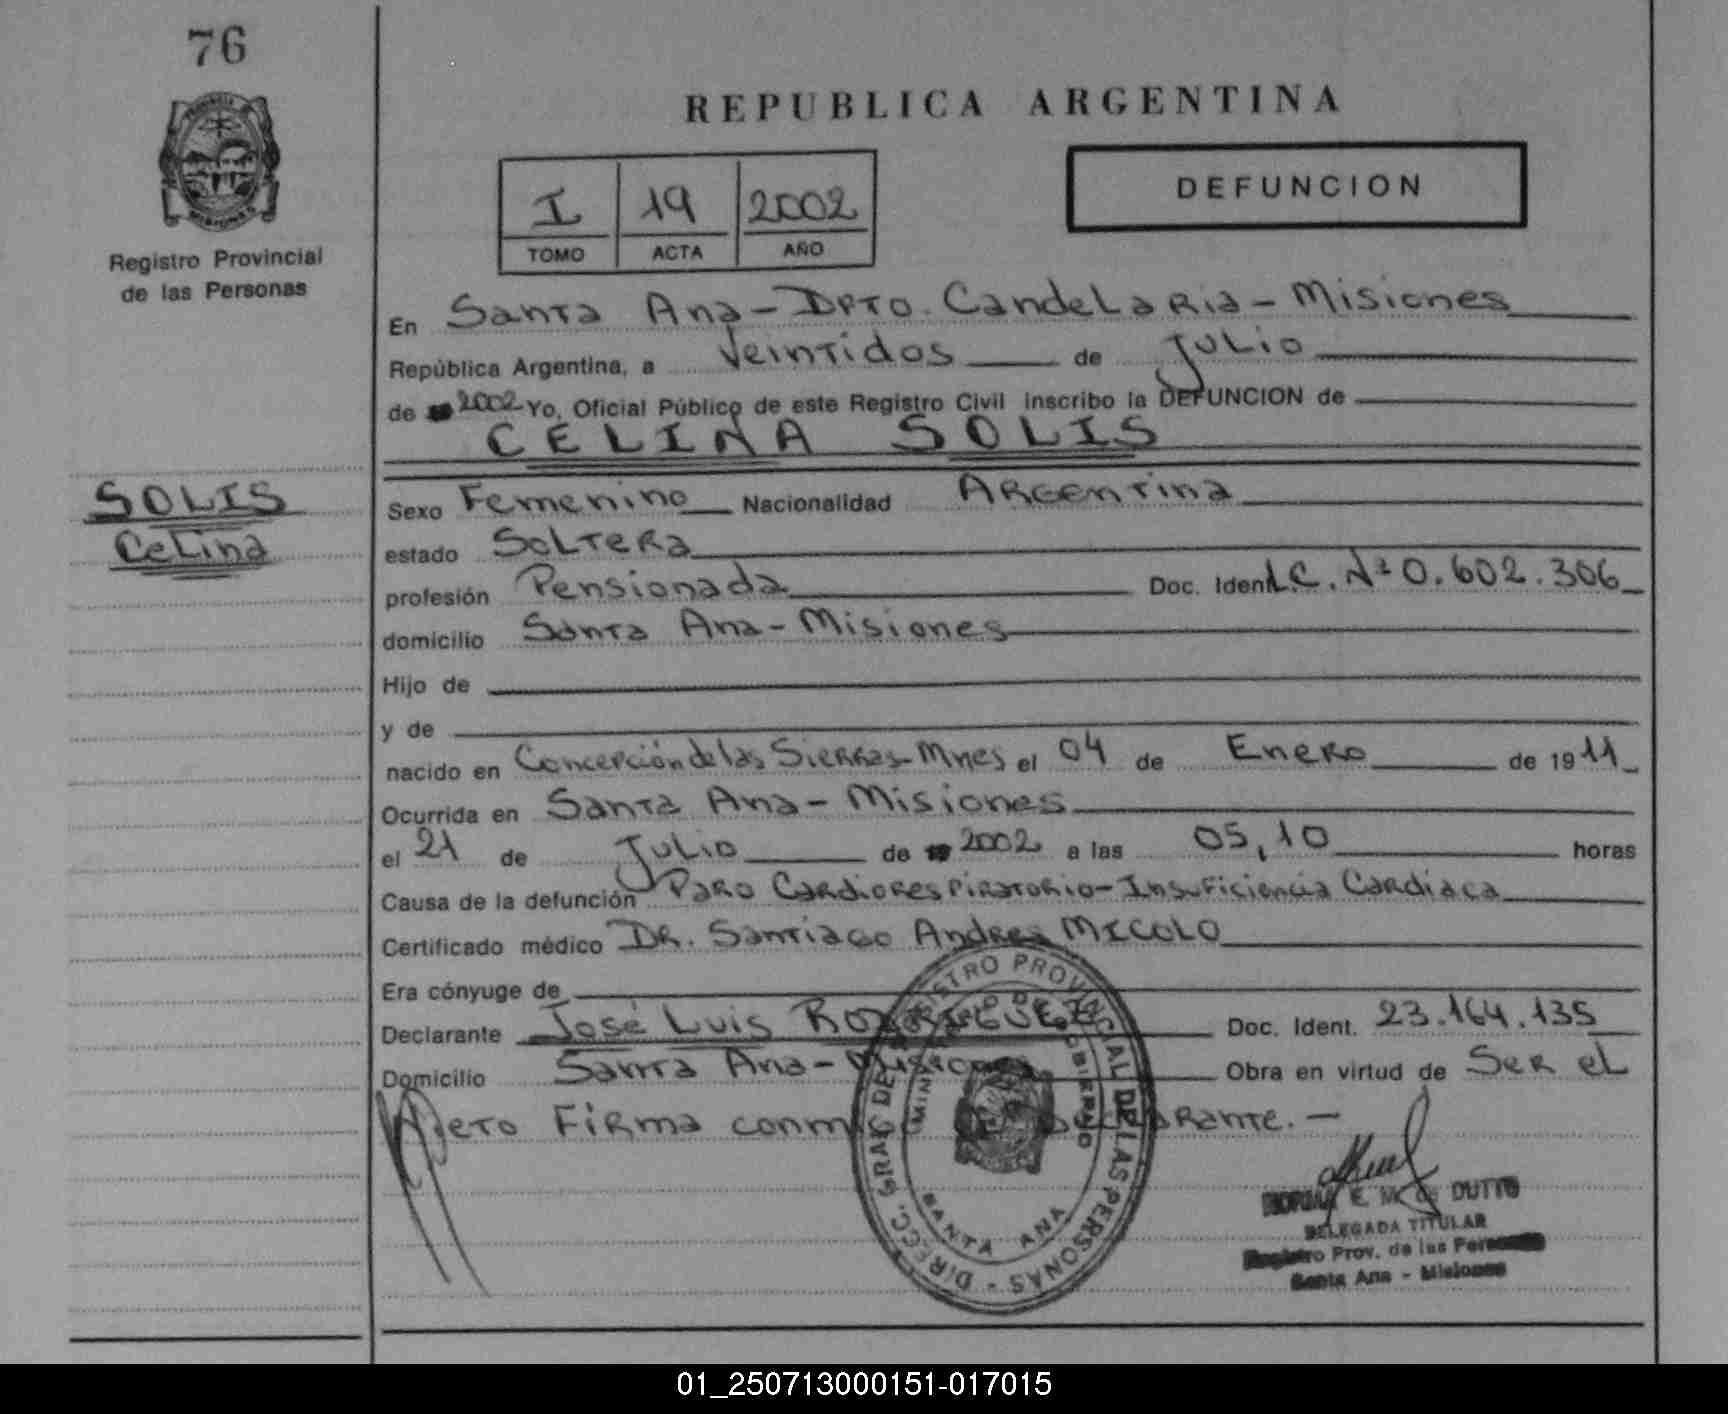 76
REPUBLICA ARGENTINA
PROVINCIA
MISIONES
Registro Provincial
de las Personas
I 19 2002
TOMO ACTA AÑO
DEFUNCION
En Santa Ana - Dpto. Candelaria - Misiones
República Argentina, a Veintidos de Julio
de 2002 Yo, Oficial Público de este Registro Civil inscribo la DEFUNCION de
CELINA SOLIS
SOLIS
Celina
Sexo Femenino Nacionalidad Argentina
estado Soltera
profesión Pensionada Doc. Ident. L.C. Nº 0.602.306
domicilio Santa Ana - Misiones
Hijo de
y de
nacido en Concepción de las Sierras - Mnes el 04 de Enero de 1911
Ocurrida en Santa Ana - Misiones
el 21 de Julio de 2002 a las 05,10 horas
Causa de la defunción Paro Cardiorespiratorio - Insuficiencia Cardiaca
Certificado médico DR. Santiago Andres MICOLO
Era cónyuge de
Declarante José Luis RODRIGUEZ Doc. Ident. 23.164.135
Domicilio Santa Ana - Misiones Obra en virtud de Ser el
Nieto Firma conmigo el Declarante. -
DIRECC. GRAL DE REGISTRO PROVINCIAL DE LAS PERSONAS -
MINISTERIO DE GOBIERNO
SANTA ANA
NORMA E. DUTTO
DELEGADA TITULAR
Registro Prov. de las Personas
Santa Ana - Misiones
01_250713000151-017015